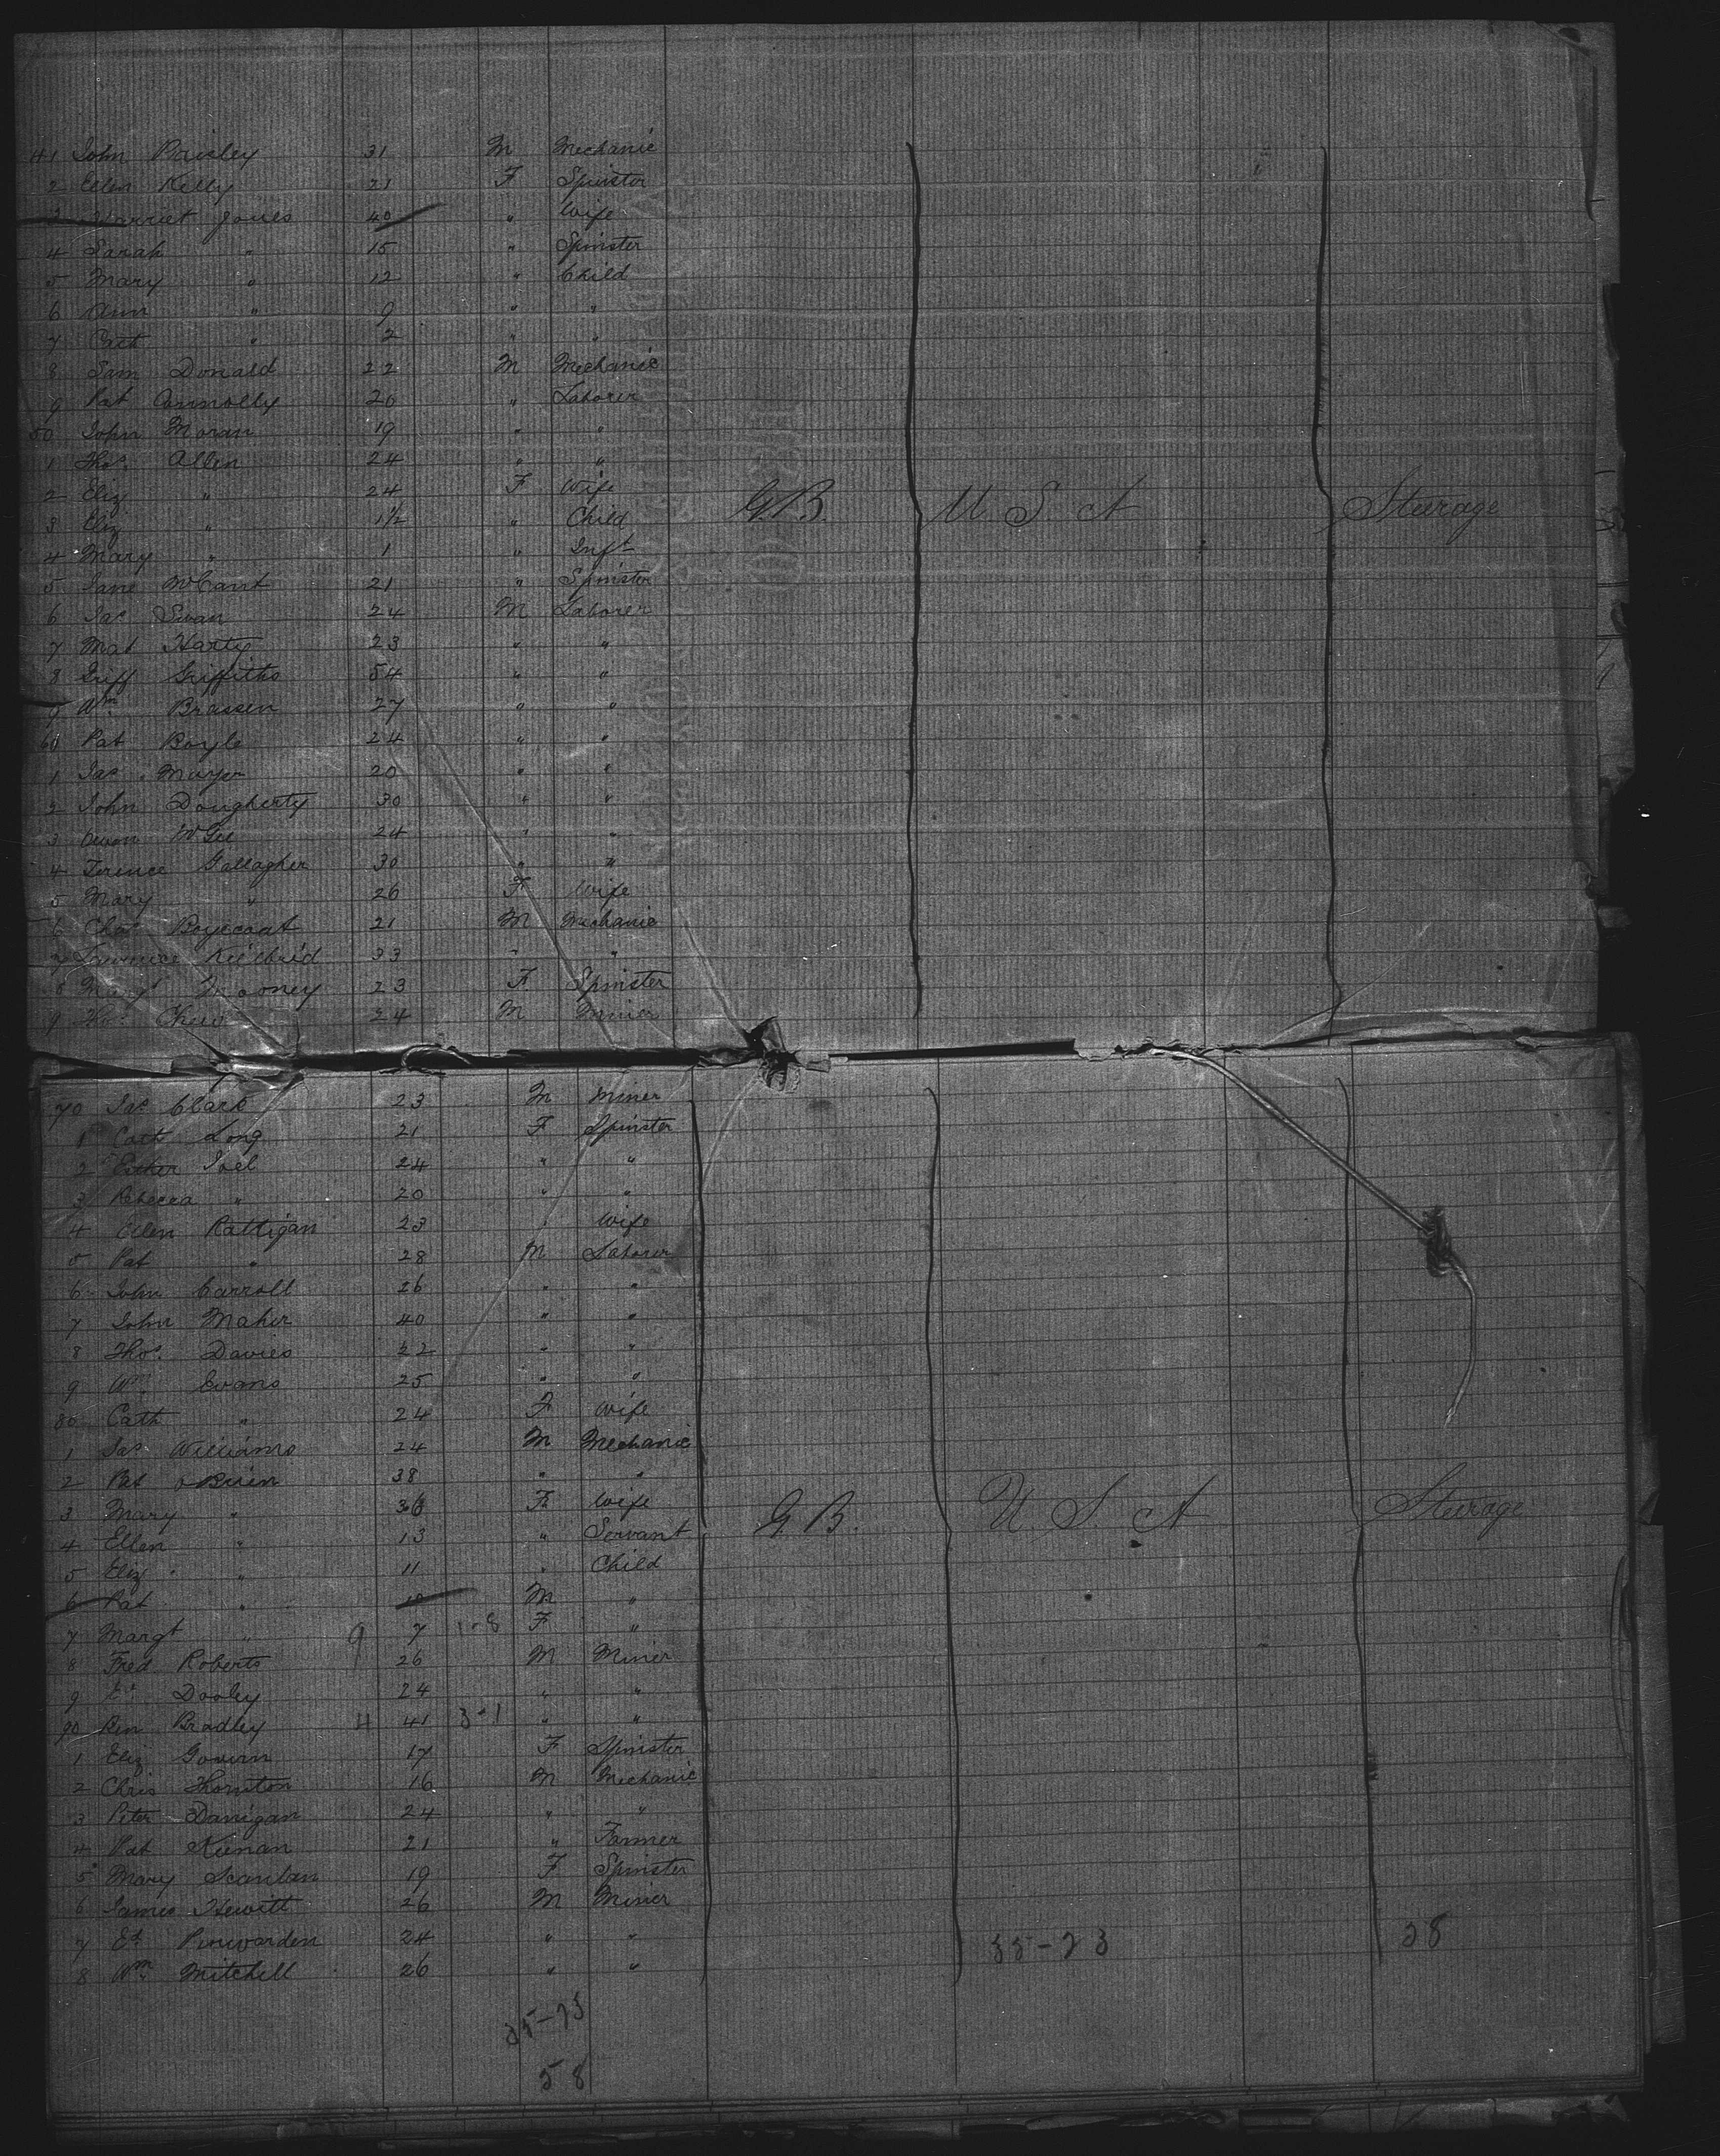 41 John Paisley 31 M Mechanic
2 Ellen Kelly 21 F Spinster
3 Harriet Jones 40 " Wife
4 Sarah " 15 " Spinster
5 Mary " 12 " Child
6 Ann " 9 " "
7 Cath " 2 " "
8 Sam Donald 22 M Mechanic
9 Pat Connolly 20 " Laborer
50 John Moran 19 " "
1 Thos. Allen 24 " "
2 Eliz " 24 F Wife G.B. U. S. A Steerage
3 Eliz " 1½ " Child
4 Mary " 1 " Inft
5 Jane McCant 21 " Spinster
6 Jas Swan 24 M Laborer
7 Mat Harty 23 " "
8 Griff Griffiths 54 " "
9 Wm. Brassen 27 " "
60 Pat Boyle 24 " "
1 Jas. 20 " "
2 John Dougherty 30 " "
3 Owen McGee 24 " "
4 Terence Gallagher 30 " "
5 Mary " 26 F Wife
6 Chas Boycoat 21 M Mechanic
7 Lawrence Kilbrid 33 " "
8 Margt Mooney 23 F Spinster
9 Thos. Chew 24 M Miner
70 Jas Clark 23 M Miner
1 Cath Long 21 F Spinster
2 Esther Joel 24 " "
3 Rebecca " 20 " "
4 Ellen Rattigan 23 " Wife
5 Pat " 28 M Laborer
6 John Carroll 26 " "
7 John Maher 40 " "
8 Thos. Davies 22 " "
9 Wm. Evans 25 " "
80 Cath " 24 F Wife
1 Jas. Williams 24 M Mechanic
2 Pat OBrien 38 " "
3 Mary " 36 F Wife G. B. U. S. A Steerage
4 Ellen " 13 " Servant
5 Eliz " 11 " Child
6 Pat " 10 M "
7 Margt " 9 7 1-8 F "
8 Fred Roberts 26 M Miner
9 Ed Dooley 24 " "
90 Ben Bradley 4 41 3-1 " "
1 Eliz Govern 17 F Spinster
2 Chris Thornton 16 M Mechanic
3 Peter Danigan 24 " "
4 Pat Kienan 21 " Farmer
5 Mary Scanlan 19 F Spinster
6 James Hewitt 26 M Miner
7 Ed. 24 " " 35-23 58
8 Wm. Mitchell 26 " "
35-23
58